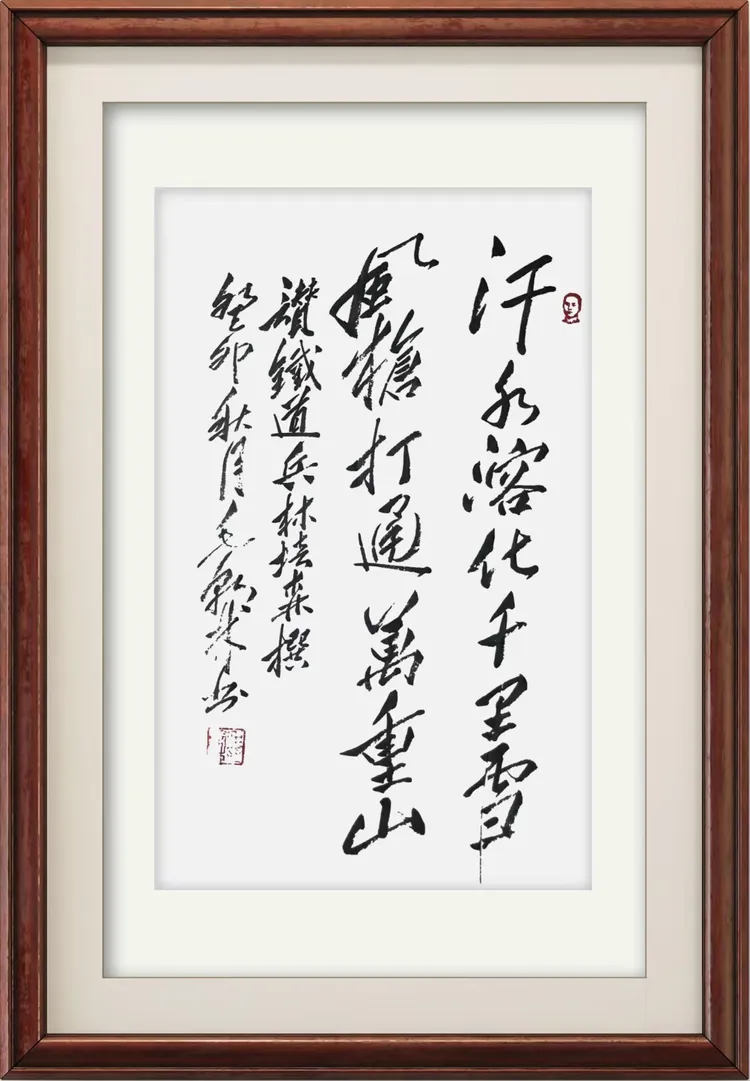 汗水溶化千里雪
風槍打通萬重山
讃鐵道兵林培森撰
癸卯秋月毛